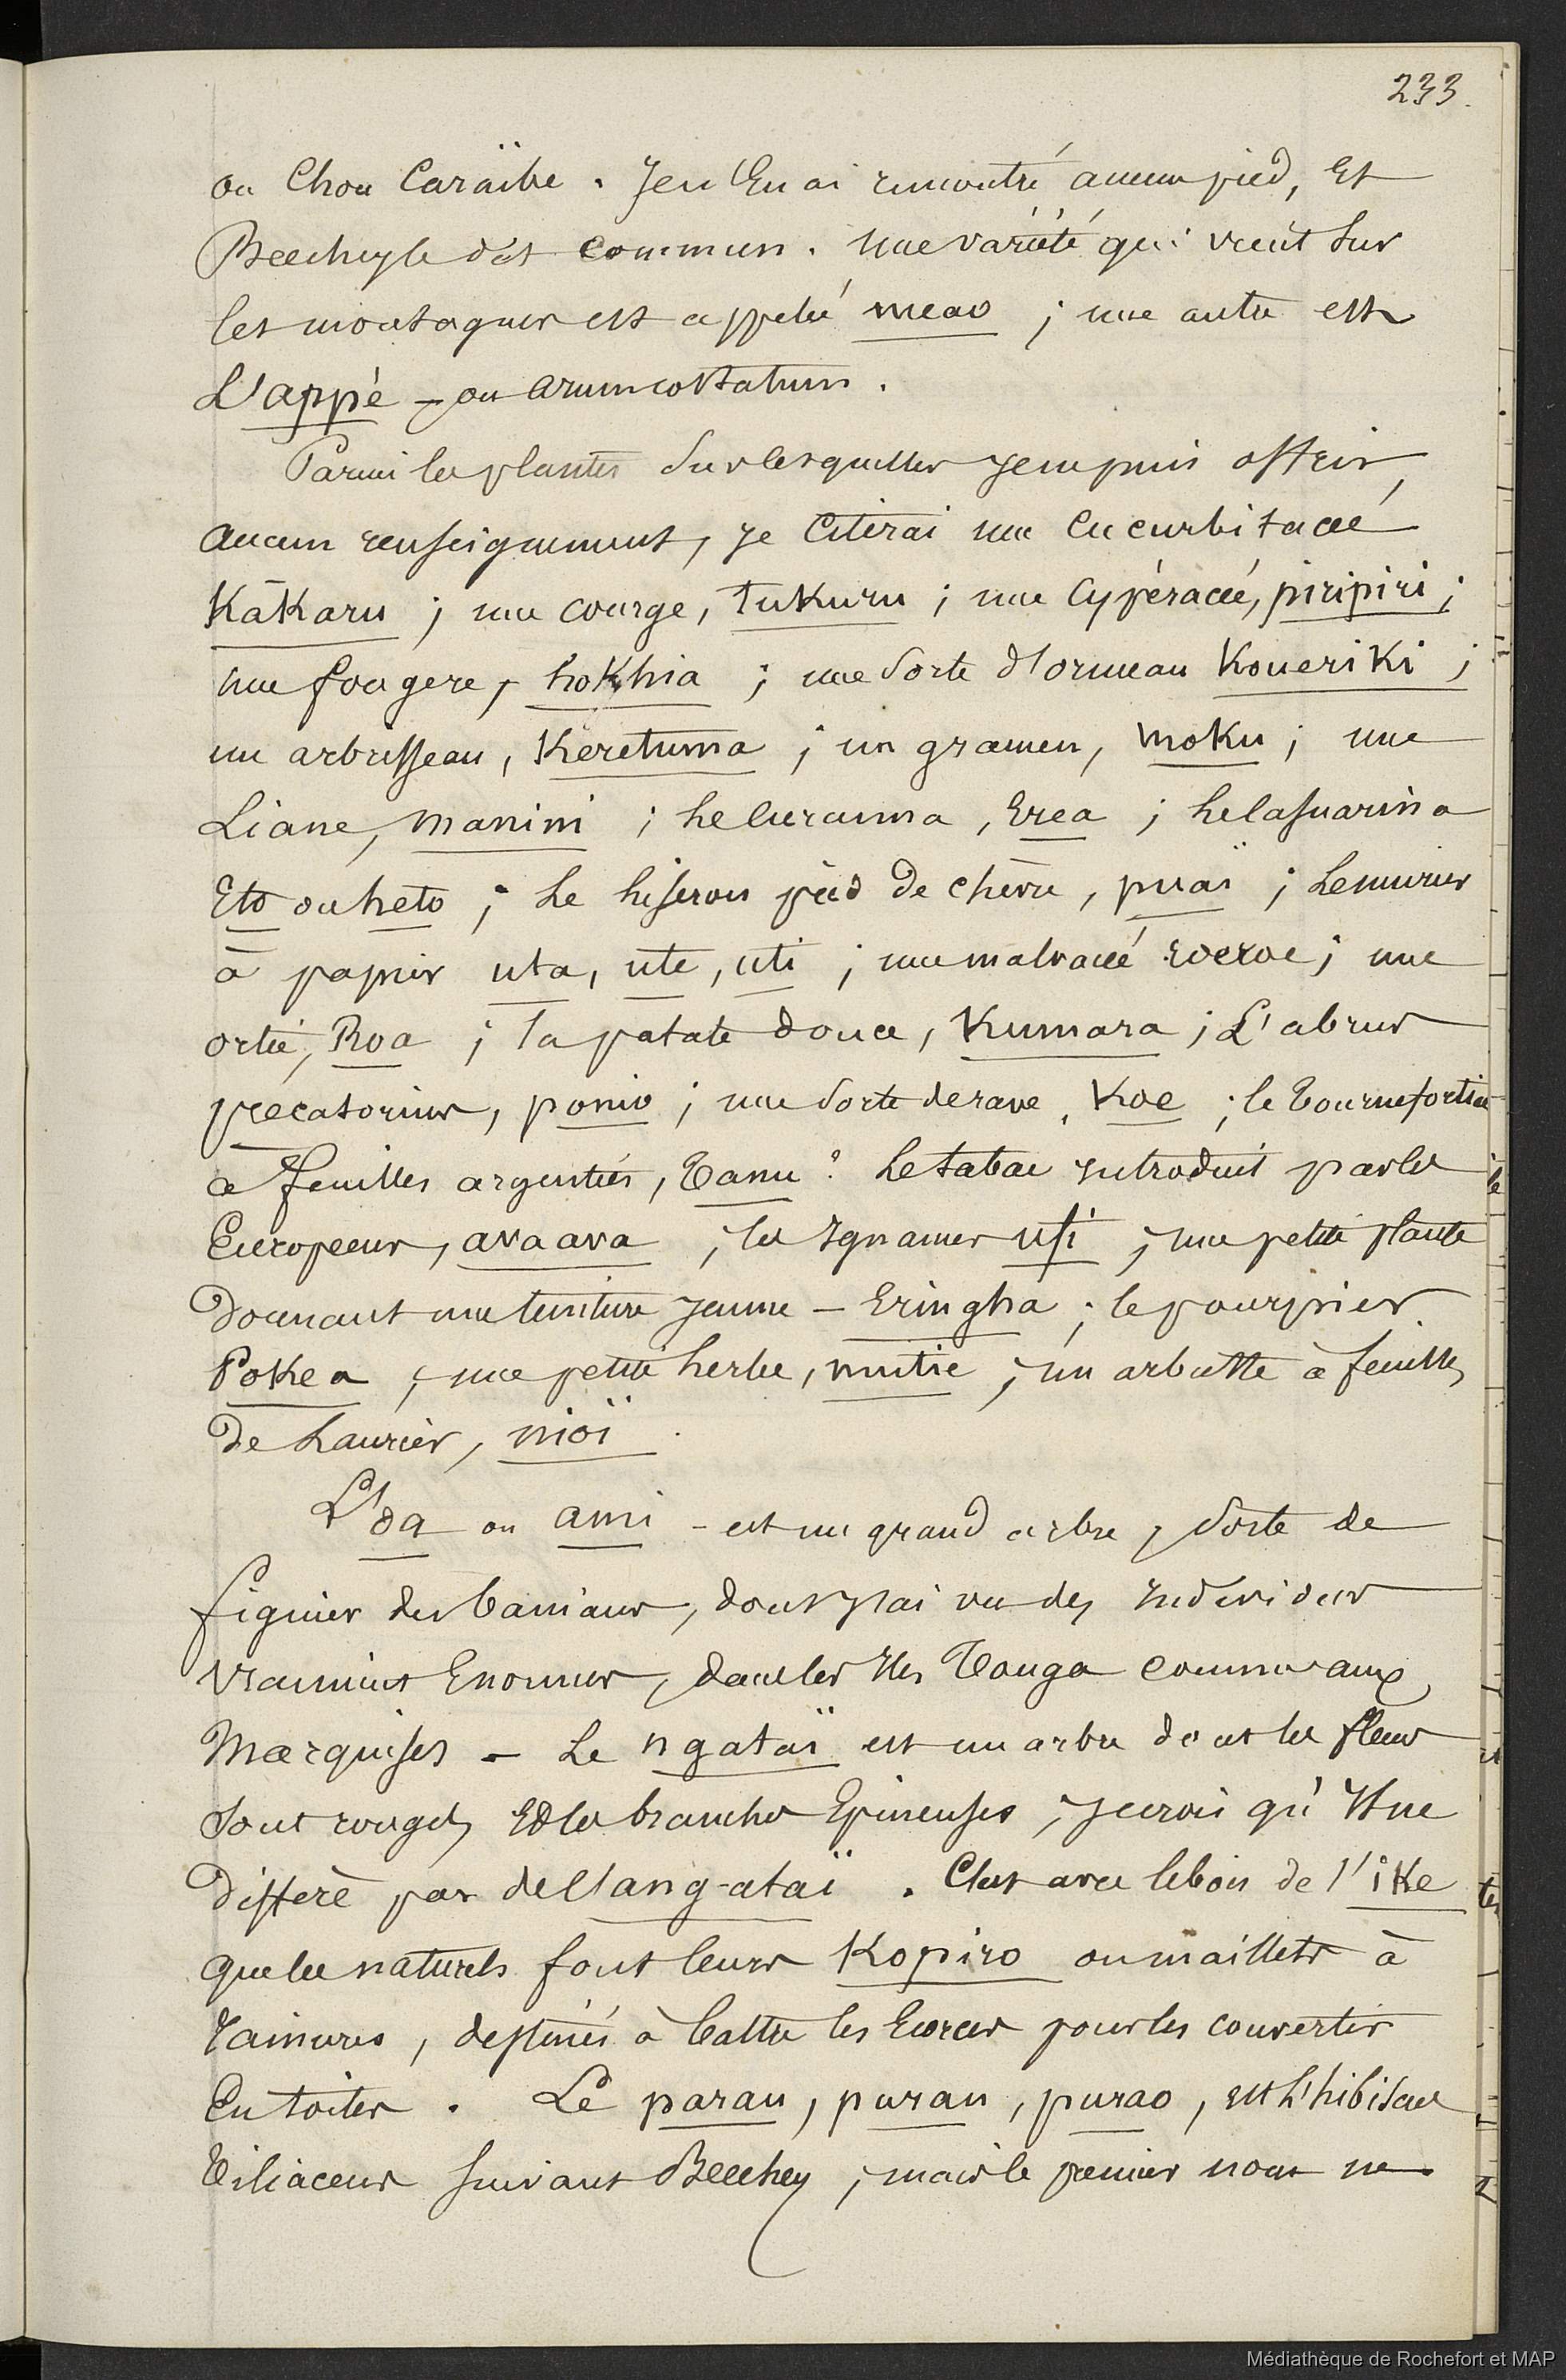 233.
ou Chou Caraïbe. Je n'en ai rencontré aucun pied, Et
Beechey le dit commun. une variété qui vient sur
les montagnes est appelée meao ; une autre est
L'appé — ou arum costatum.
Parmi les plantes sur lesquelles je ne puis offrir,
aucun renseignement, je citerai une Cucurbitacée
Kākaru ; une courge, tukuru ; une Cypéracée, piripiri ;
une fougere, hokhia ; une sorte d'ormeau Koueriki ;
un arbrisseau, Keretuma ; un gramen, moku ; une
Liane, manini ; le Curcuma, Erea ; le Casuarina
Eto ou heto ; Le liseron pied de chèvre, puaï ; Le murier
à papier uta, ute, uti ; une malvacée roeroe ; une
ortie, Roa ; la patate douce, Kumara ; L'abrus
precatorius, poniu ; une sorte de rave, Koe ; le Tournefortia
à feuilles argentées, Tanu. Le tabac introduit par les
Européens, avaava ; les Ignames ufi ; une petite plante
donnant une teinture jaune — Eringha ; le pourpier
Pokea ; une petite herbe, mutie ; un arbuste à feuilles
de Laurier, nioï.
L'oa ou ami — est un grand arbre, sorte de
figuier des banians, dont j'ai vu des individus
vraiment Enormes, dans les Iles Tonga comme aux
Marquises — Le ngataï est un arbre dont les fleurs
sont rouges Et les branches Epineuses, je crois qu'Il ne
differe pas de l'ang-ataï. C'est avec le bois de l'ike
que les naturels font leurs Kopiro ou maillets à
rainures, destinés à battre les Ecorces pour les convertir
En toiles. Le parau, purau, purao, est l'hibiscus
Tiliaceus suivant Beechey ; mais le premier nom ne